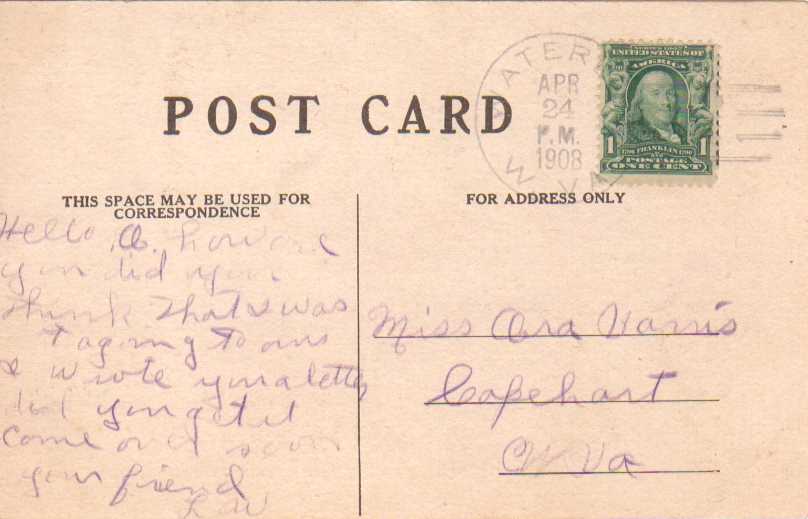 POST CARD
WATER
APR
24
P.M.
1908
W. VA
SERIES 1902
UNITED STATES OF
AMERICA
1 1
1706 FRANKLIN 1790
POSTAGE
ONE CENT
THIS SPACE MAY BE USED FOR
CORRESPONDENCE
FOR ADDRESS ONLY
Hello
you did you
think that I was
to
I wrote you a letter
did you get it
come over soon
your friend
Miss Ora Harris
Capehart
W Va